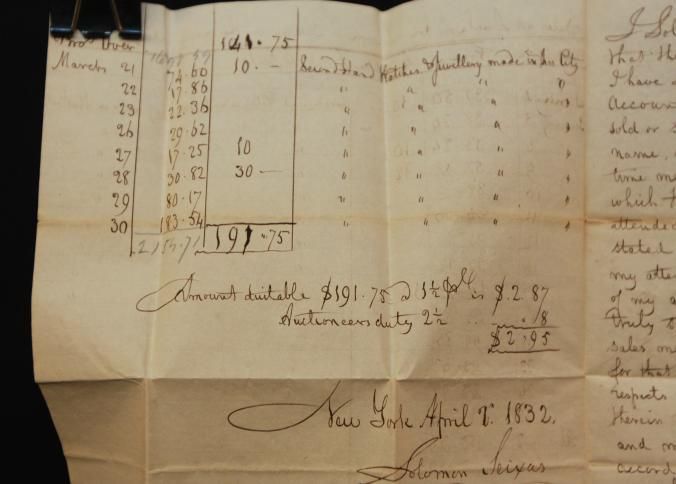 Over 141.75
March 21 74.60 10.— Second Hand Watches & Jewellery made in this City
22 17.86 " " " "
23 22.36 " " " "
26 29.62 " " " "
27 17.25 10 " " " "
28 30.82 30— " " " "
29 80.17 " " " "
30 183.54 " " " "
191.75
Amount dutiable $191.75 @ 1½ is $.2.87
Auctioneers duty 2½ .. .. .8
$2.95
New York April 1832.
Solomon Seixas
that th
I have a
Accoun
sold or s
name,
time me
which
attende
stated
my atte
of my a
truly
sales on
for that
respects
therein
and m
accord